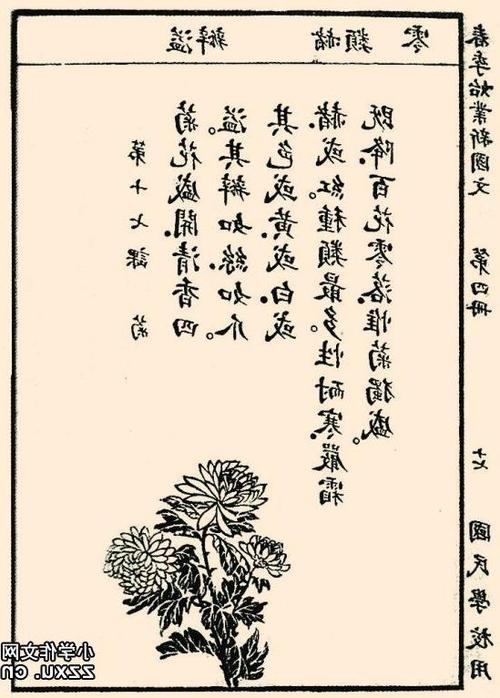 溢瓣 赭類 零
第十七課 菊
菊花盛開.清香四
溢。其瓣如絲.如爪。
其色或黃.或白.或
赭.或紅。種類最多。性耐寒.嚴霜
既降.百花零落.惟菊獨盛。
春季始業新國文 第四冊 十七 國民學校用
小学作文网
zzxu.cn